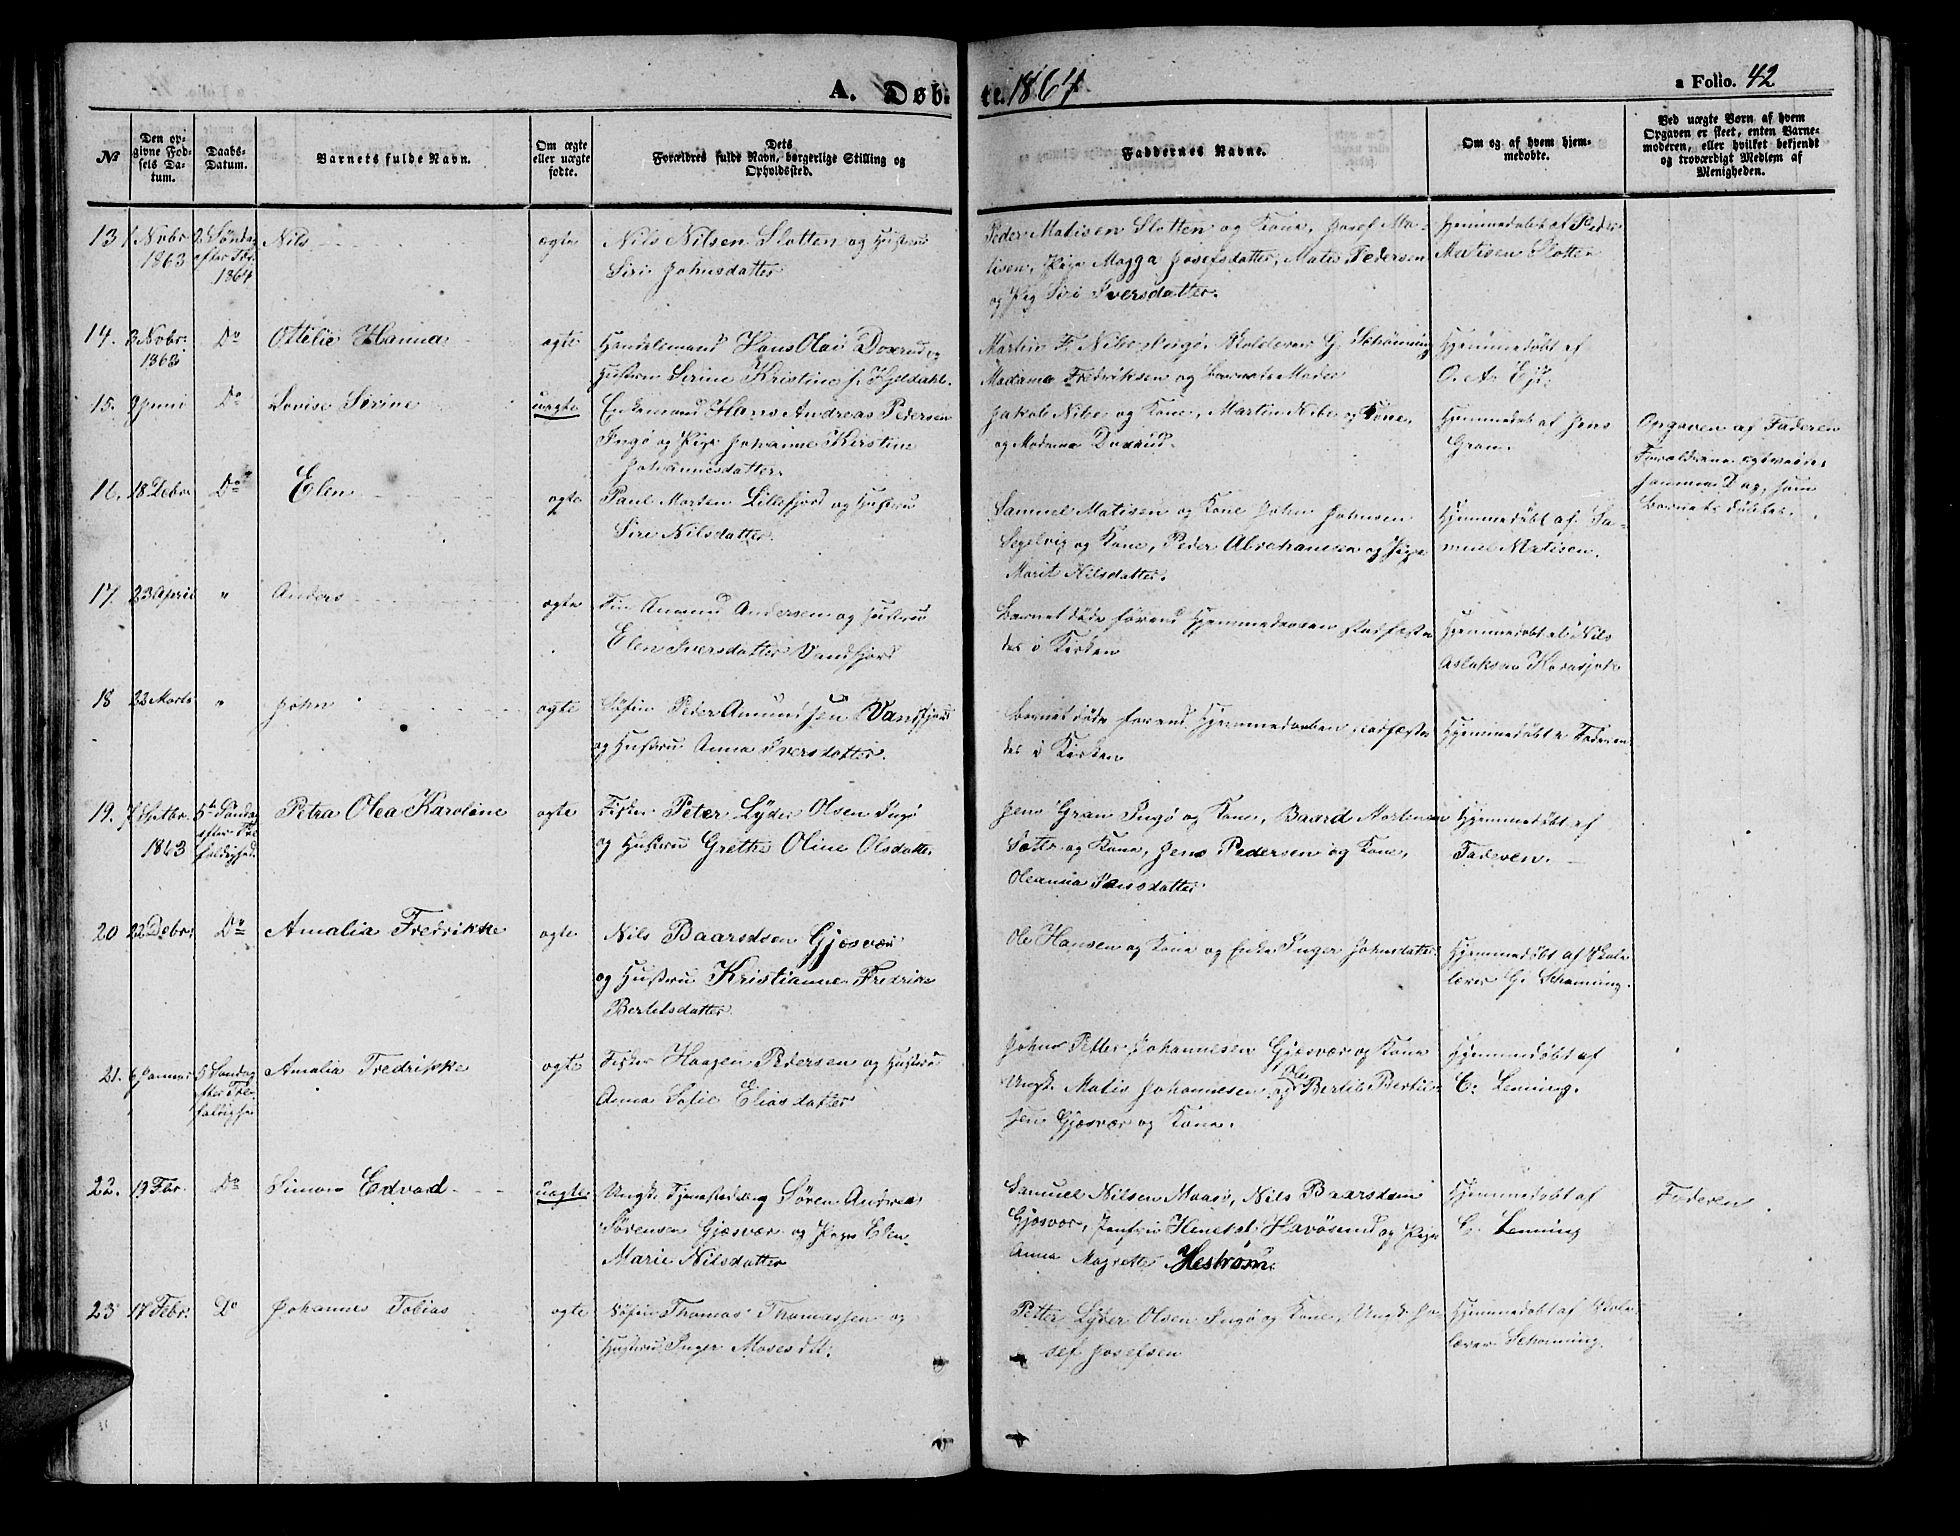 A. Døb-
te. 1864
a Folio. 42
№
Den op-
givne Fød-
sels Da-
tum.
Daabs-
Datum.
Barnets fulde Navn.
Om ægte
eller uægte
fødte.
Dets
Forældres fulde Navn, borgerlige Stilling og
Opholdssted.
Faddernes Navne.
Om og af hvem hjem-
medøbte.
Ved uægte Børn af hvem
Opgaven er skeet, enten Barne-
moderen, eller hvilket bekjendt
og troværdigt Medlem af
Menigheden.
13 1 Novbr Søndag Nils ægte Nils Nilsen Slotten og Hustru
1863 efter
1864
Siri Johnsdatter
Peder Matisen Slotten og Kone, Josef Ma-
tisen, Pige Magga Josefsdatter, Mates Pedersen
og Pig Siri Iversdatter.
Hjemmedøbt af Peder
Matisen Slotten
14. 3 Novbr. Do Ottilie Hanna ægte Handelsmand Hans Olai Doxrud og
1863
Hustru Sirine Kristine f. Kjeldahl.
Martin F. Nibe, G. Schønning
Madame Fredriksen og Barnets Moder
Hjemmedøbt af
O. A. Eje.
15. 9 Juni Do Lovise Sirine uægte Enkemand Hans Andreas Pedersen
Ingø og Pige Johanne Kirstine
Johannesdatter.
Jakob Nibe og Kone, Martin Nibe og Kone,
og Madame Doxrud.
Hjemmedøbt af Jens
Gran.
Opgaven af Faderen
Forældrene
samme Dag, som
Barnet døbtes.
16. 18 Debr. Do Elen ægte Paul Morten Lillefjord og Hustru
Siri Nilsdatter
Samuel Matisen og Kone John Johnsen
Segelvig og Kone, Peder Abrehamsen og Pige
Marit Nilsdatter.
Hjemmedøbt af Sa-
muel Matisen.
17. 23 April " Anders ægte Fin Amund Andersen og Hustru
Elen Iversdatter Vandfjord
Barnet døde førend Hjemmedaaben stadfæste
des i Kirken
Hjemmedøbt af Nils
Aslaksen Karasjok
18 22 Marts " John ægte Søfin Peder Amundsen Vandfjord
og Hustru Anna Iversdatter.
Barnet døde førend Hjemmedaaben stadfæste
des i Kirken
Hjemmedøbt a. Faderen
19. 7 Septbr. 5te Søndag Petra Olea Karoline ægte Fisker Peter Lyder Olsen Ingø
1863 efter Tre-
foldighed.
og Hustru Grethe Oline Olsdatter
Jens Gran Ingø og Kone, Baard Mortensen
og Kone, Jens Pedersen og Kone,
Oleanna Jensdatter
Hjemmedøbt af
Faderen.
20 22 Debr. Do Amalia Fredrikke ægte Nils Baardsen Gjæsvær
og Hustru Kristianne Fredrike
Bertelsdatter
Ole Hansen og Kone og Enke Inger Johnsdatter
Hjemmedøbt af Skole-
lærer G. Schønning.
21. 6 Januar 5 Søndag Amalia Fredrikke ægte Fisker Haagen Pedersen og Hustru
efter Tre-
foldighed
Anna Sofie Eliasdatter
John Petter Johannesen Gjæsvær og Kone
Ungk. Matis Johannesen og Ole Bertil Bertil-
sen Gjæsvær og Kone.
Hjemmedøbt af
C. Lenning.
22. 19 Fbr. Do Simon Edvard uægte Ungk. Søren Andrea
Sørensen Gjæsvær og Pigen Elen
Marie Nilsdatter
Samuel Nilsen Maasø, Nils Baardsen
Gjæsvær, Jomfru Havøsund og Pige
Anna Magrethe Hestrøm.
Hjemmedøbt af
C. Lenning
Faderen
23 17 Febr. Do Johannes Tobias ægte Søfin Thomas Thomassen og
Hustru Inger Mosesdtr.
Petter Lyder Olsen Ingø og Kone, Ungk. Jo-
sef Josefsen
Hjemmedøbt af Skole-
lærer Schønning.